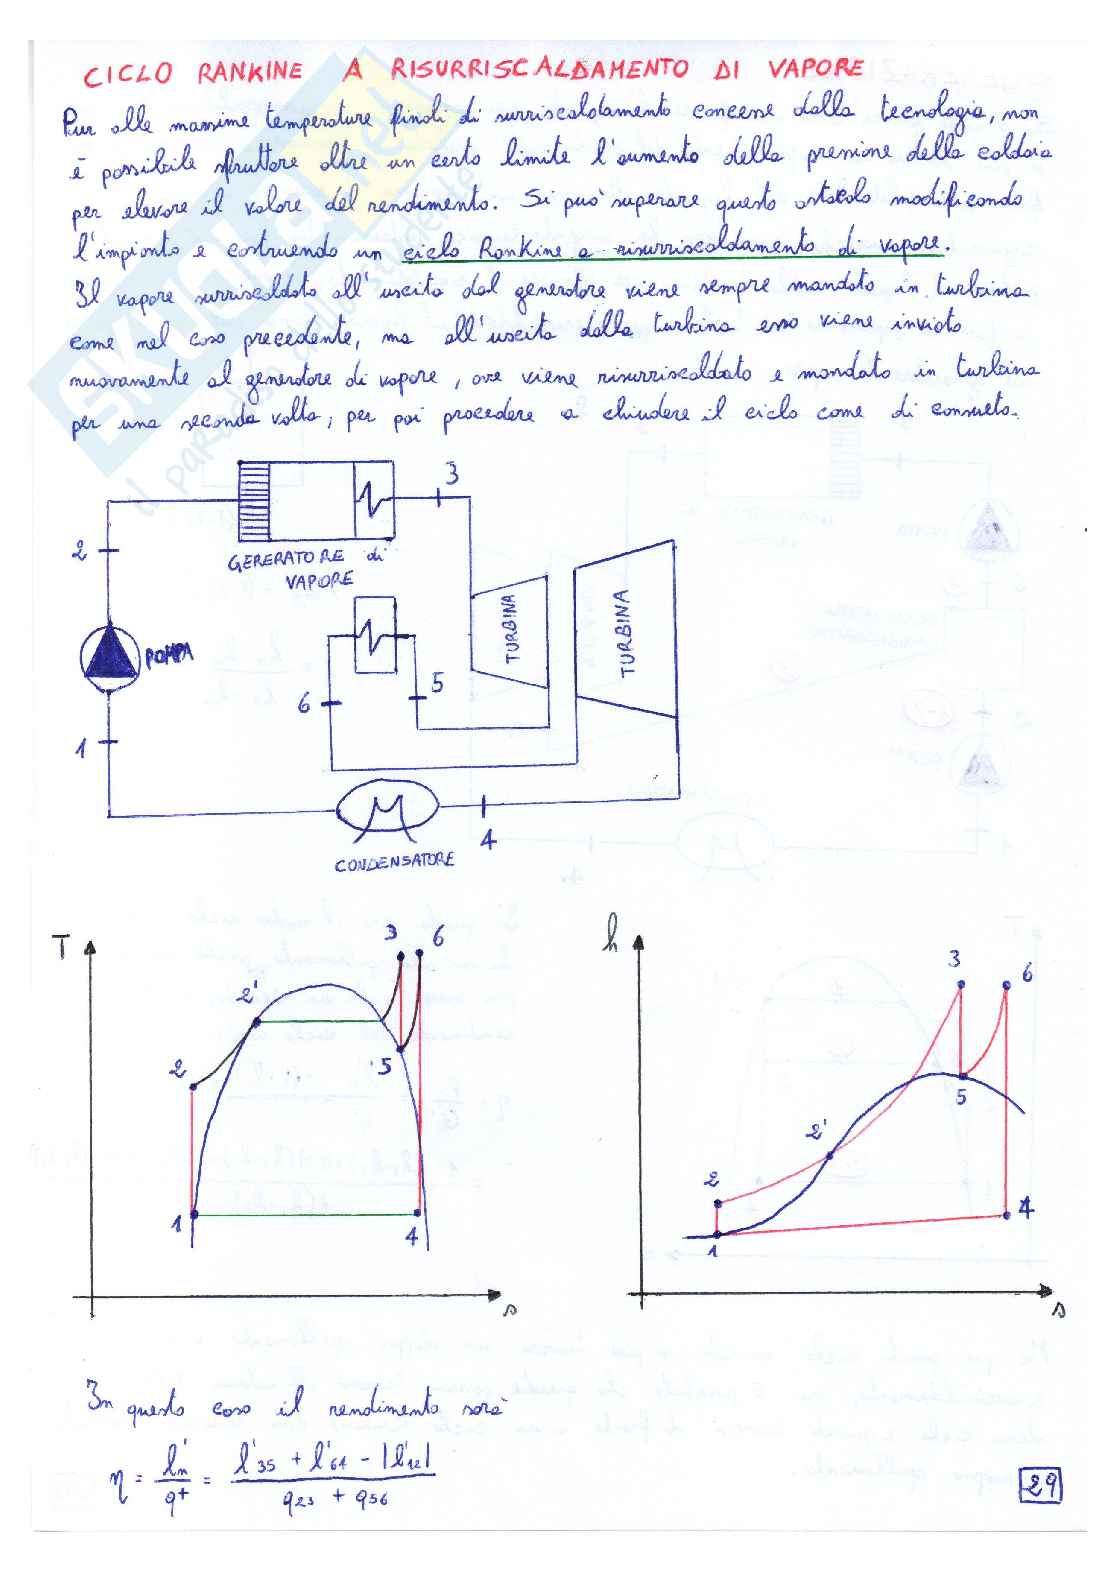 CICLO RANKINE A RISURRISCALDAMENTO DI VAPORE
Pur alle massime temperature finali di surriscaldamento concesse dalla tecnologia, non
è possibile sfruttare oltre un certo limite l'aumento della pressione della caldaia
per elevare il valore del rendimento. Si può superare questo ostacolo modificando
l'impianto e costruendo un ciclo Rankine a risurriscaldamento di vapore.
Il vapore surriscaldato all'uscita dal generatore viene sempre mandato in turbina
come nel caso precedente, ma all'uscita dalla turbina esso viene inviato
nuovamente al generatore di vapore, ove viene risurriscaldato e mandato in turbina
per una seconda volta, per poi procedere a chiudere il ciclo come di consueto.
3
2
GERERATORE di
VAPORE
TURBINA
TURBINA
POMPA
5
6
1
4
CONDENSATORE
T
3
6
2'
2
5
1
4
s
h
3
6
5
2'
2
4
1
s
In questo caso il rendimento sarà
η = l'n / q+ = l'35 + l'64 - |l'12| / q23 + q56
29
SKUOLA.net
il paradiso dello studente